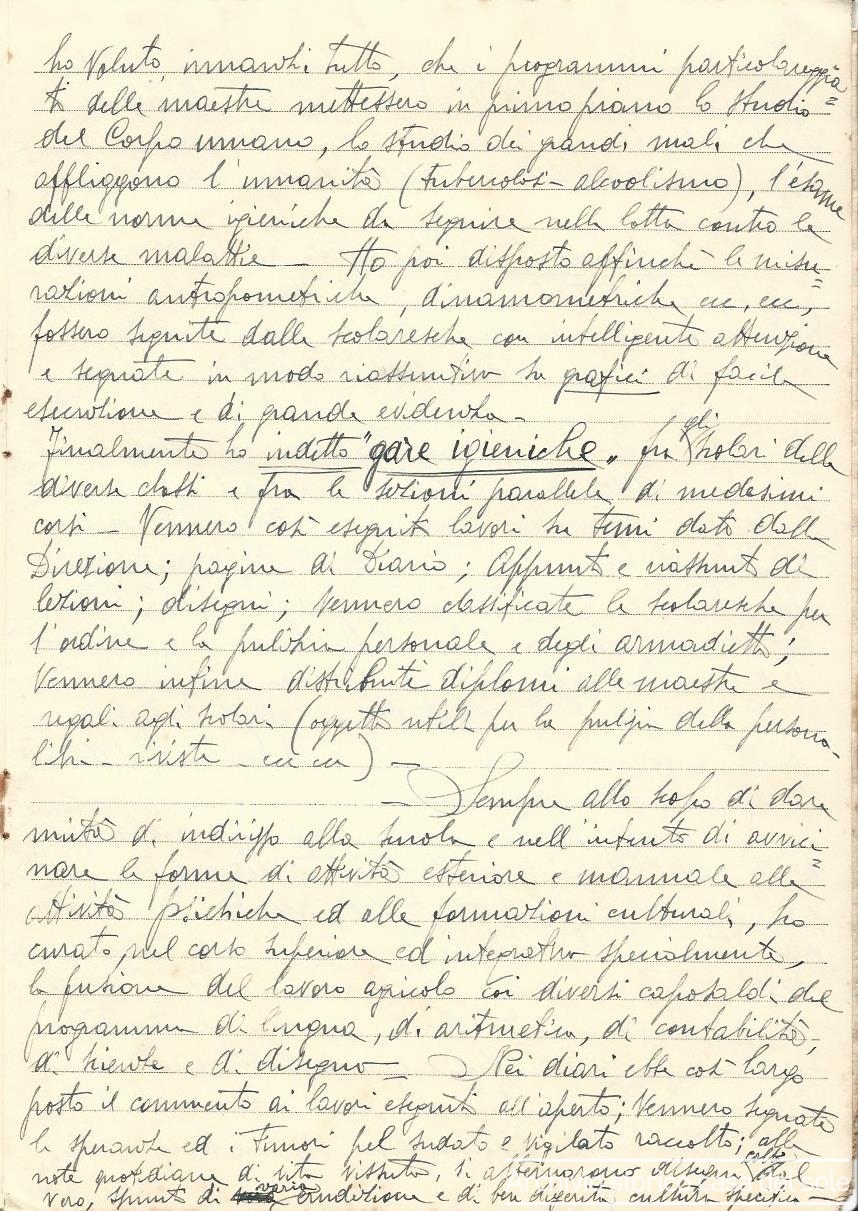 ho voluto, innanzi tutto, che i programmi particolareggia=
ti delle maestre mettessero in primo piano lo studio
del Corpo umano, lo studio dei grandi mali che
affliggono l'umanità (tubercolosi - alcoolismo), l'esame
delle norme igieniche da seguire nella lotta contro le
diverse malattie - Ho poi disposto affinchè le misu=
razioni antropometriche, dinamometriche ecc, ecc,
fossero seguite dalle scolaresche con intelligente attenzione
e segnate in modo riassuntivo su grafici di facile
esecuzione e di grande evidenza -
Finalmente ho indetto "gare igieniche" fra gli scolari delle
diverse classi e fra le sezioni parallele di medesimi
corsi - Vennero così eseguiti lavori su temi dati dalla
Direzione; pagine di Diario; Appunti e riassunti di
lezioni; disegni; Vennero classificate le scolaresche per
l'ordine e la pulizia personale e degli armadietti;
Vennero infine distribuiti diplomi alle maestre e
regali agli scolari (oggetti utili per la pulizia della persona -
libri - riviste - ecc ecc) -
- Sempre allo scopo di dare
unità di indirizzo alla scuola e nell'intento di avvici=
nare le forme di attività esteriore e manuale alle
attività psichiche ed alle formazioni culturali, ho
curato, nel corso superiore ed integrativo specialmente,
la fusione del lavoro agricolo coi diversi caposaldi del
programma di lingua, di aritmetica, di contabilità,
di scienze e di disegno - Nei diari ebbe così largo
posto il commento ai lavori eseguiti all'aperto; Vennero segnate
le speranze ed i timori pel sudato e vigilato raccolto; alle
note quotidiane di vita vissuta, si alternarono disegni dal
vero, spunti di varia erudizione e di ben digerita cultura specifica -